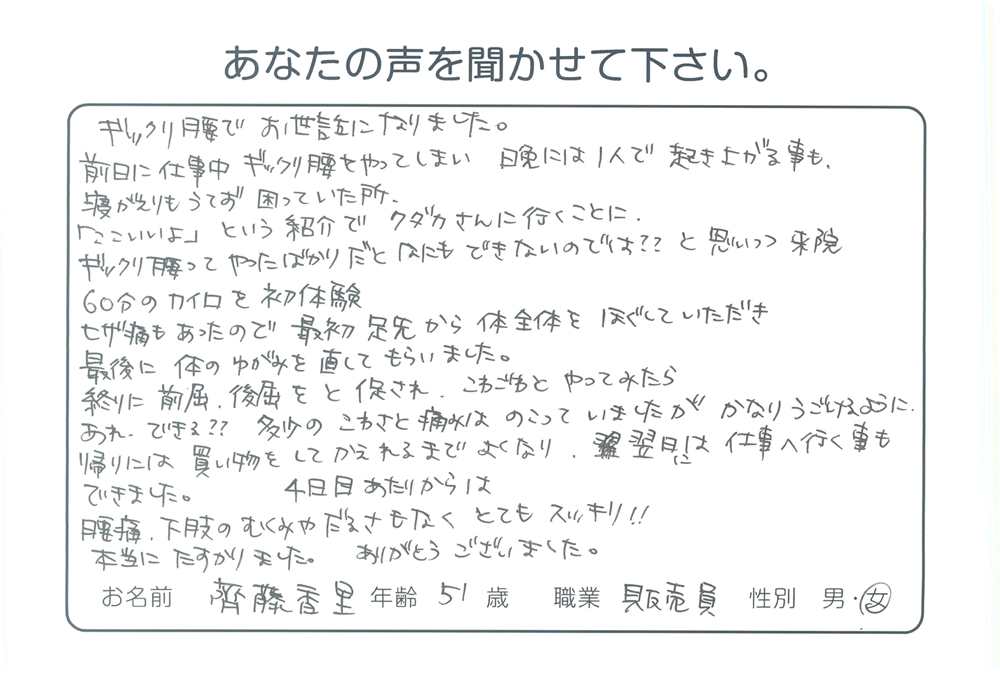 あなたの声を聞かせて下さい。
ギックリ腰で お世話になりました。
前日に仕事中 ギックリ腰をやってしまい 日晩には1人で 起き上がる事も、
寝がえりもうてず 困っていた所、
「ここいいよ」という紹介で クダカさんに行くことに、
ギックリ腰って やったばかりだと なにも できないのでは?? と思いつつ 来院
60分のカイロを初体験
ヒザ痛もあったので 最初 足先から 体全体を ほぐしていただき
最後に 体の ゆがみを直して もらいました。
終りに前屈、後屈をと促され、こわごわと やってみたら
あれ、できる?? 多少の こわさと痛みは のこって いましたが かなりうごけるように、
帰りには 買い物を してかえれるまでよくなり、翌日には 仕事へ行く事も
できました。 4日目あたりからは
腰痛、下肢のむくみや だるさもなく とても スッキリ!!
本当に たすかりました。 ありがとう ございました。
お名前 齊藤香里 年齢 51 歳 職業 販売員 性別 男・女